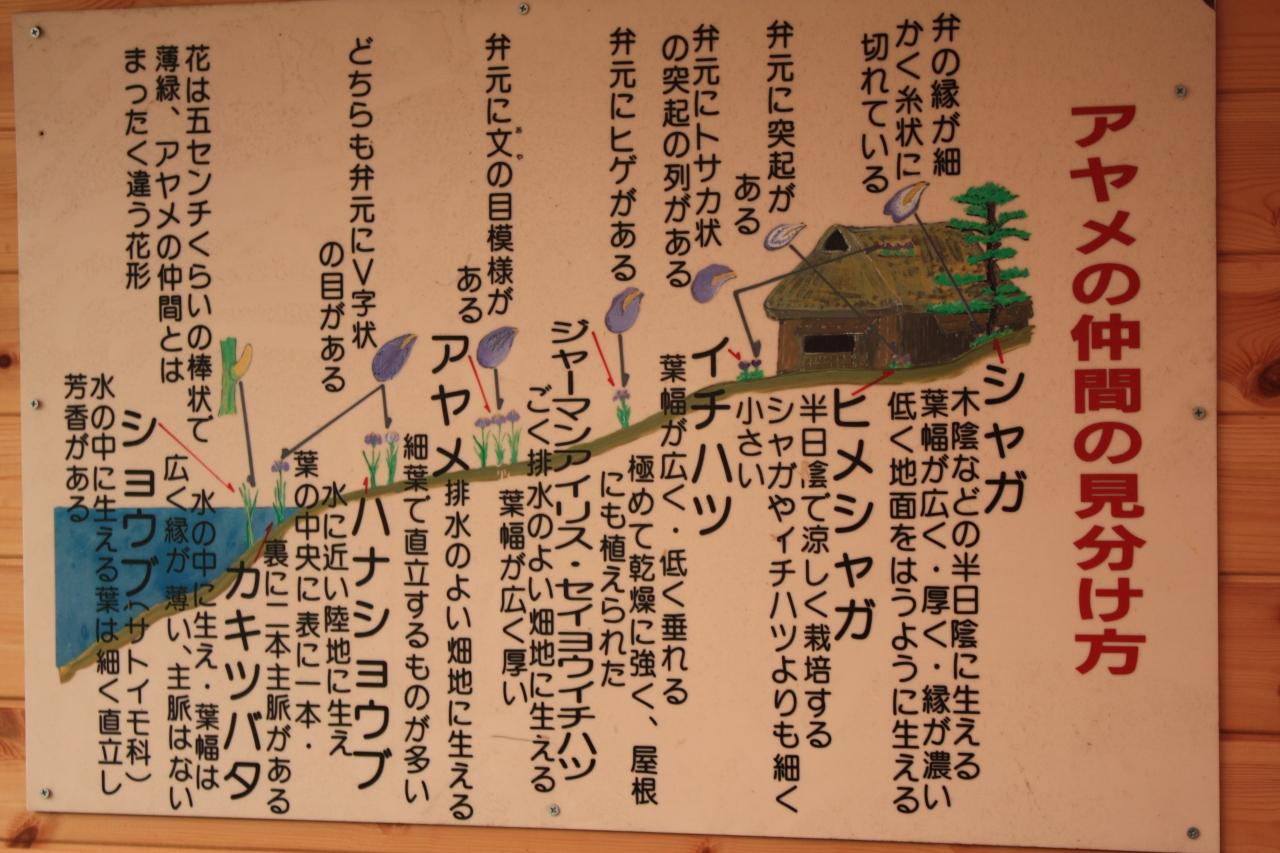 アヤメの仲間の見分け方
弁の縁が細
かく糸状に
切れている
シャガ
木陰などの半日陰に生える
葉幅が広く・厚く・縁が濃い
低く地面をはうように生える
弁元に突起が
ある
ヒメシャガ
半日陰で涼しく栽培する
シャガやイチハツよりも細く
小さい
弁元にトサカ状
の突起の列がある
イチハツ
葉幅が広く・低く垂れる
極めて乾燥に強く、屋根
にも植えられた
弁元にヒゲがある
ジャーマンアイリス・セイヨウイチハツ
ごく排水のよい畑地に生える
葉幅が広く厚い
弁元に文の目模様が
あや
ある
アヤメ
排水のよい畑地に生える
細葉で直立するものが多い
どちらも弁元にV字状
の目がある
ハナショウブ
水に近い陸地に生え
葉の中央に表に一本・
裏に二本主脈がある
カキツバタ
水の中に生え・葉幅は
広く縁が薄い、主脈はない
花は五センチくらいの棒状で
薄緑、アヤメの仲間とは
まったく違う花形
ショウブ(サトイモ科)
水の中に生える葉は細く直立し
芳香がある